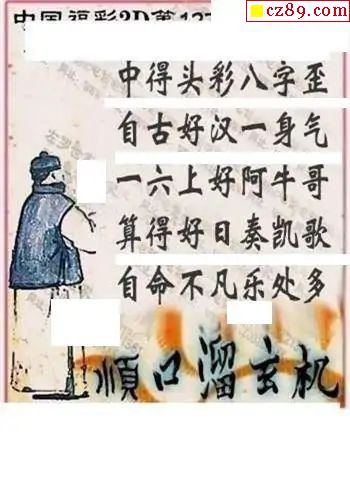 cz89.com
中国福彩3D第
中得头彩八字歪
自古好汉一身气
一六上好阿牛哥
算得好日奏凯歌
自命不凡乐处多
顺口溜玄机